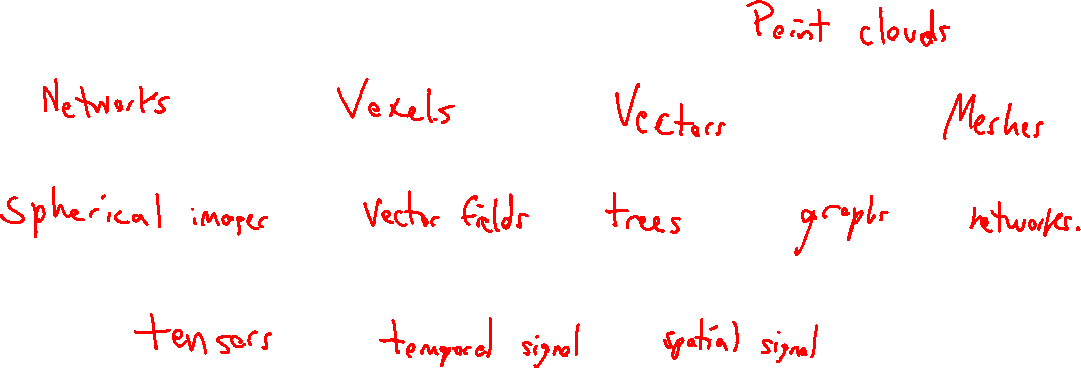 Point clouds
Networks Voxels Vectors Meshes
Spherical images Vector fields trees graphs networks.
tensors temporal signal spatial signal